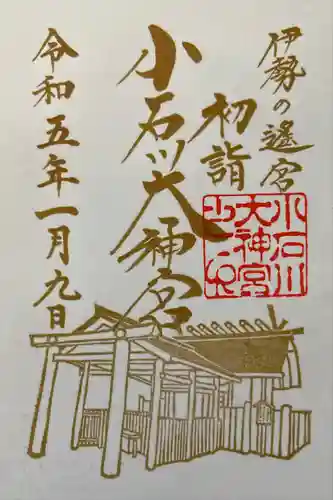 伊勢の遥宮
初詣
小石川大神宮
令和五年一月九日
小石川
大神宮
之印